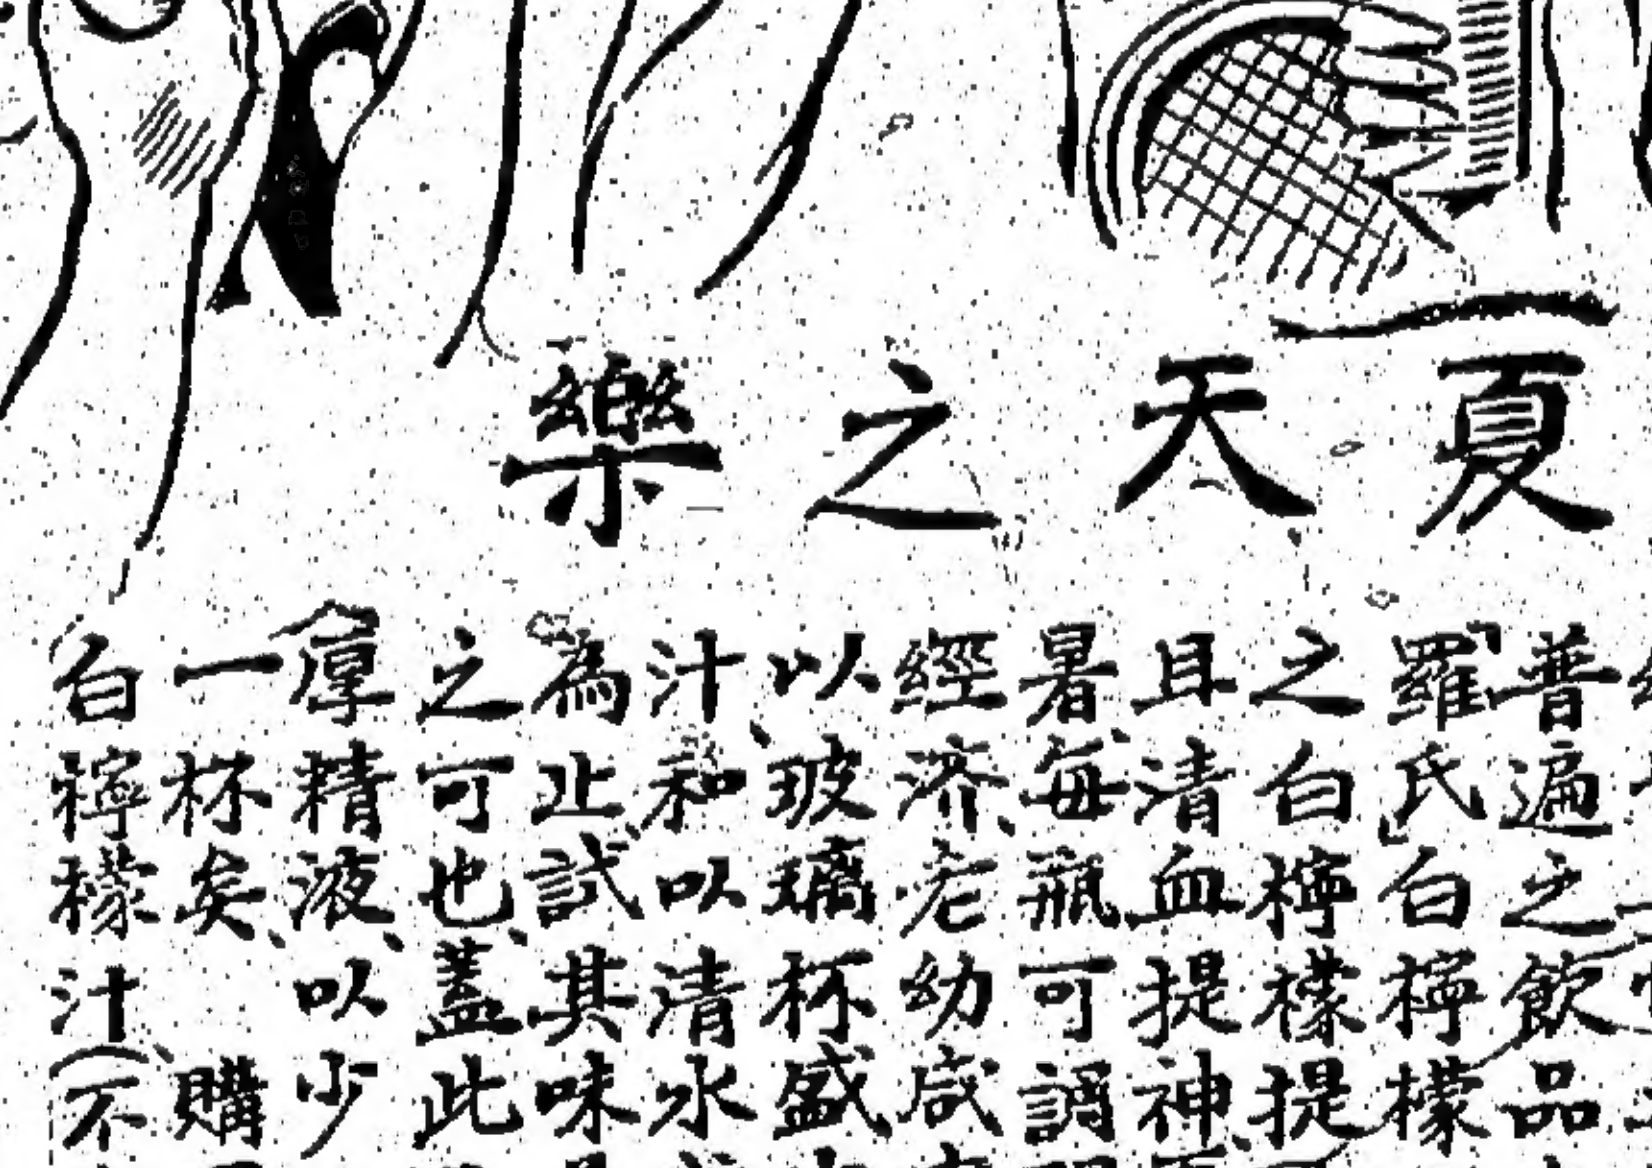 夏天之樂
普遍之飲品
羅氏白檸檬
之白檸檬提
且清血提神
暑、每瓶可謂
經濟、老幼咸
以玻璃杯盛
汁、和以清水
為止試其味
之可也、蓋此
厚精液、以少
一杯矣、購
白檸檬汁(不